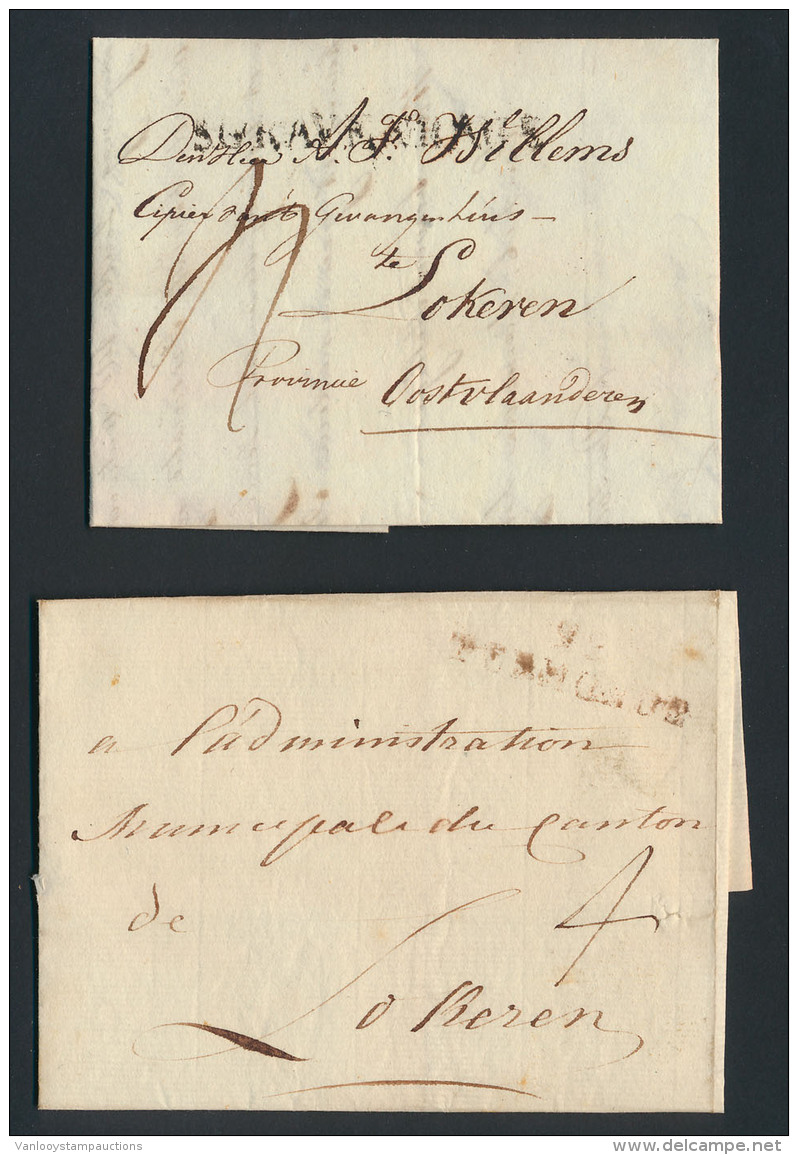 S'GRAVENHAGE
Den Heer A. Fo. Willems
Cipier van't Gevangenhuis
te
Lokeren
Provincie Oostvlaanderen
TERMONDE
a L'administration
Municipale du Canton
de 4
Lokeren
Vanlooystampauctions
delcampe.net